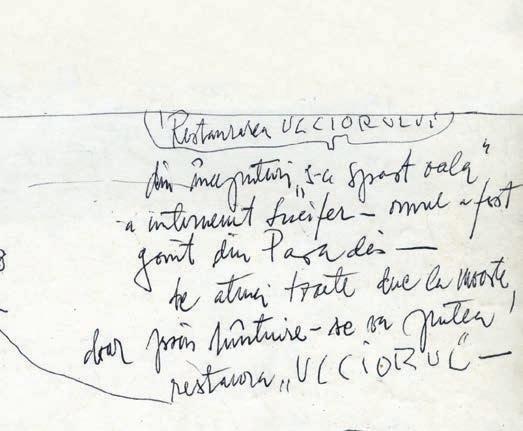 Restaurarea ULCIORULUI
din începuturi „s-a spart oala”
a intervenit Lucifer – omul a fost
gonit din Paradis —
de atunci toate duc la moarte,
doar prin mîntuire – se va putea
restaura „ULCIORUL” —